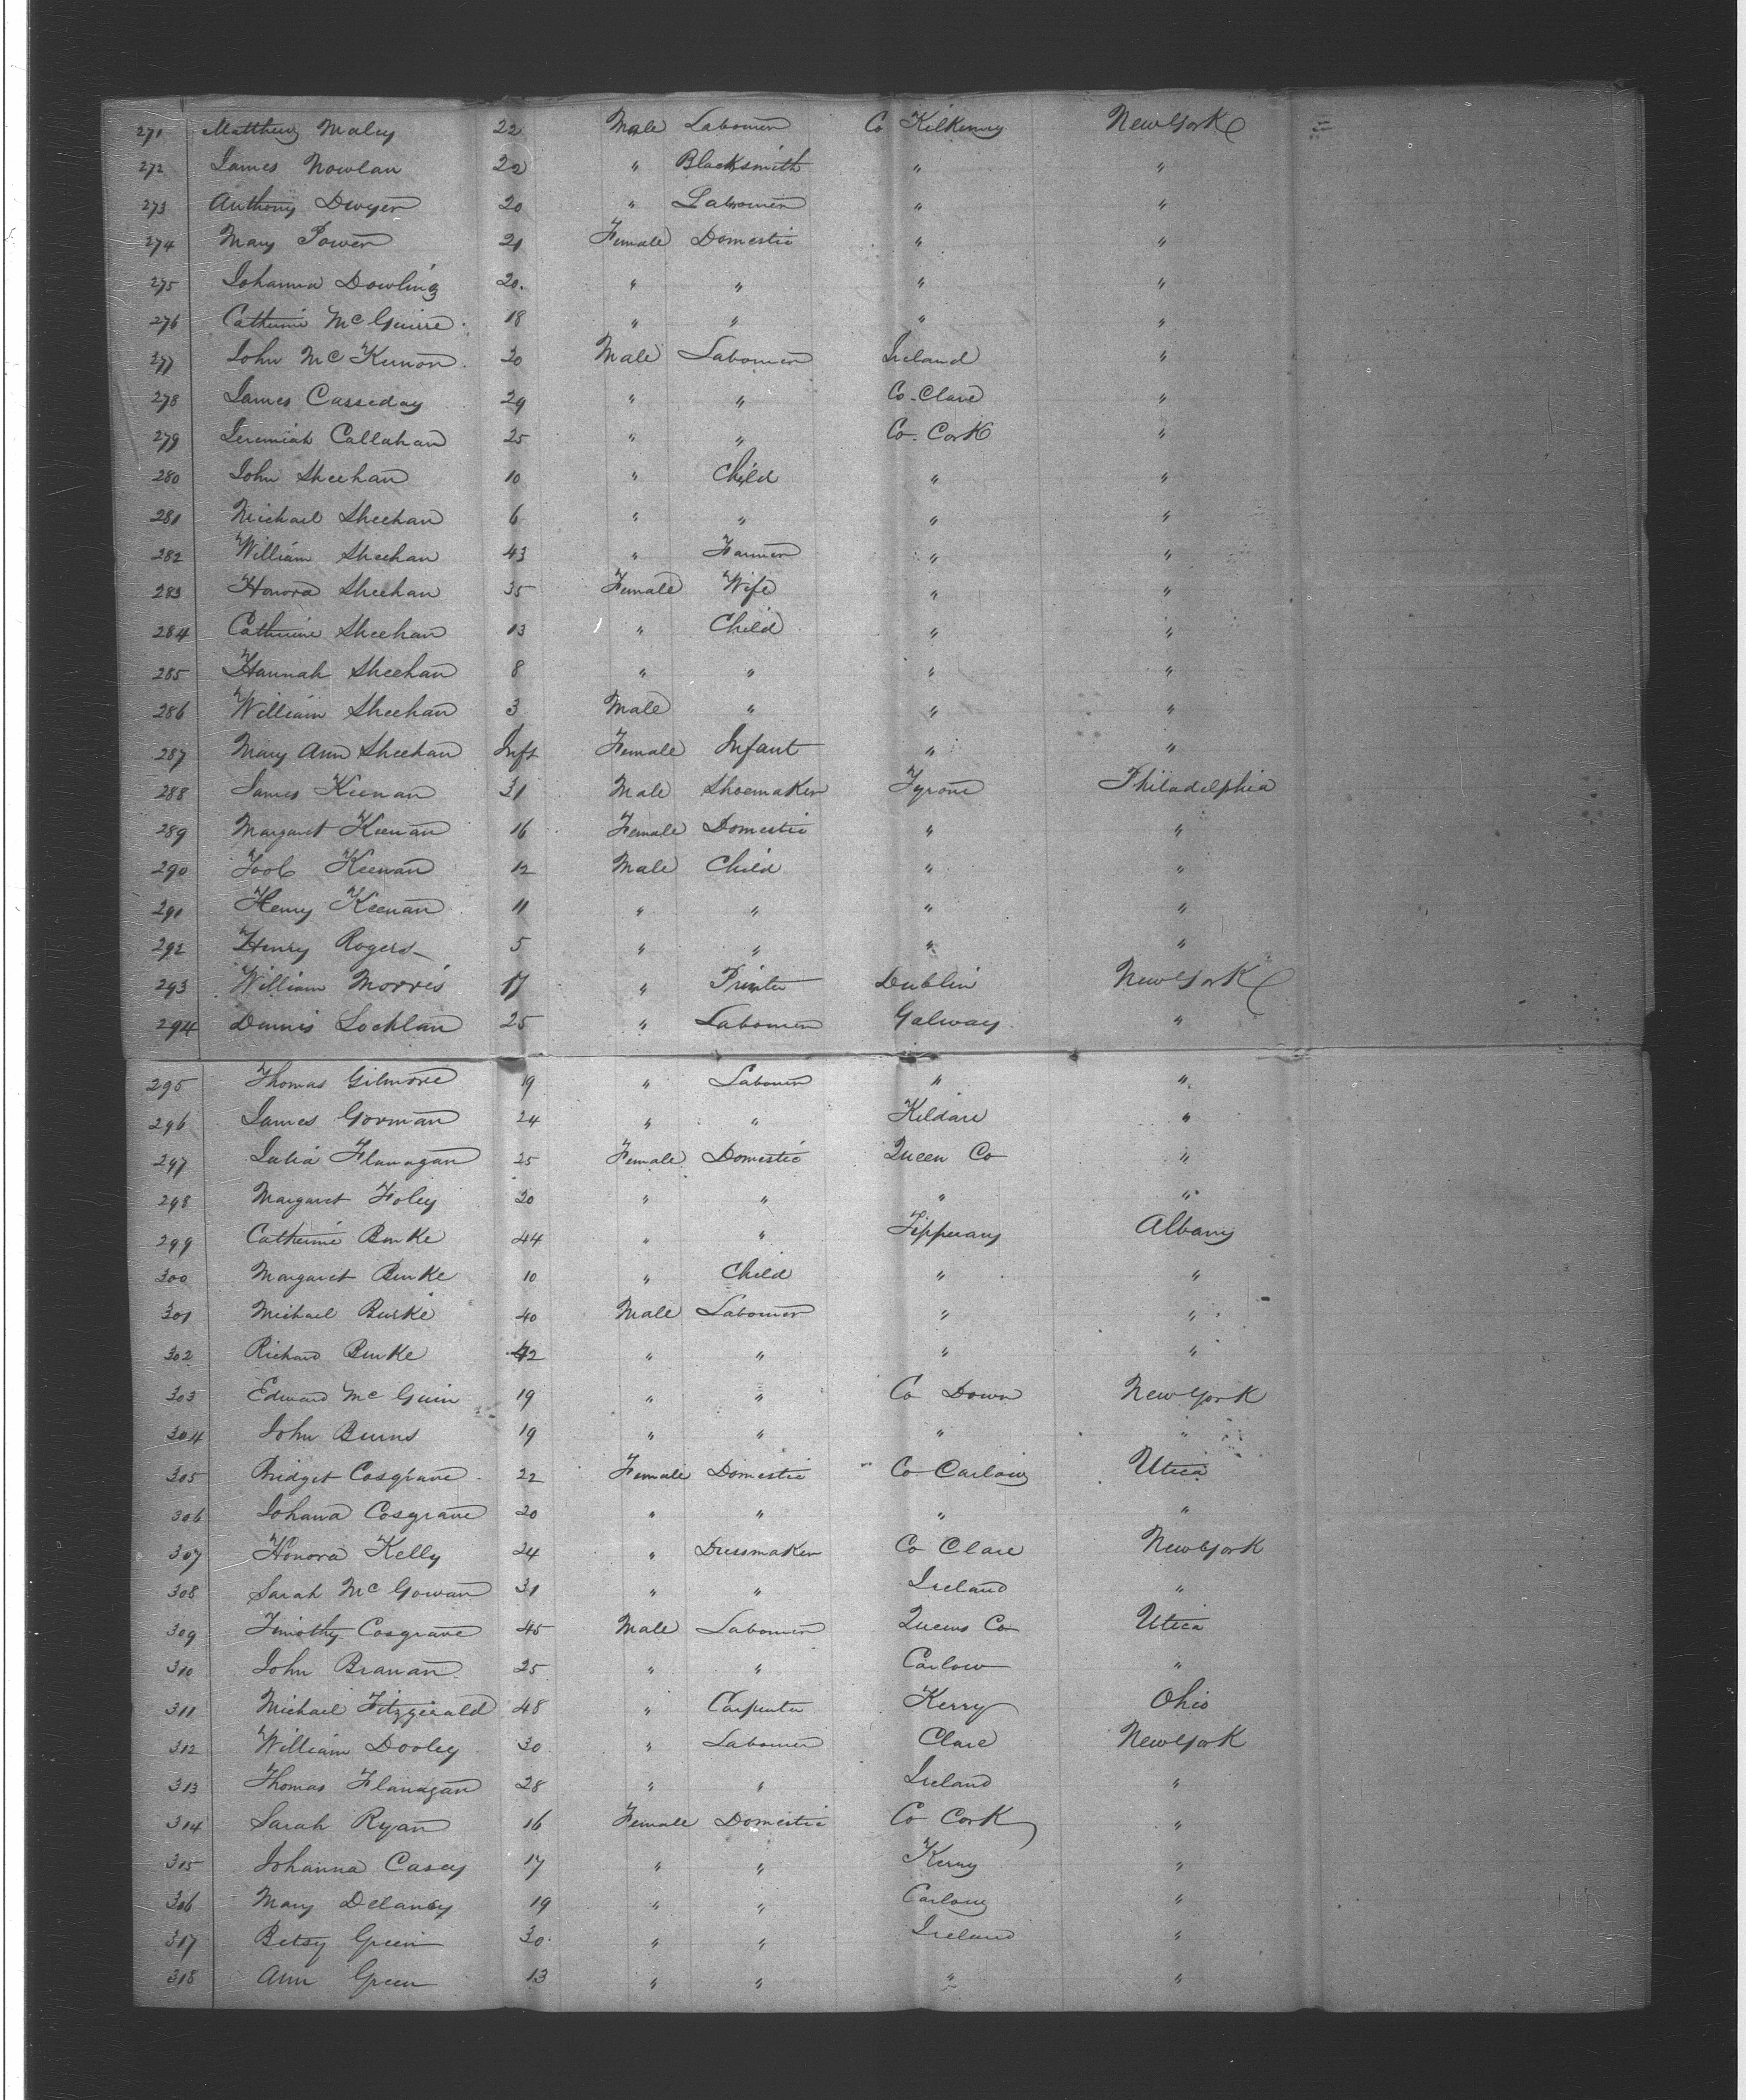 271 Matthew Maley 22 Male Labourer Co Kilkenny New York
272 James Nowlan 22 " Blacksmith " "
273 Anthony Dwyer 20 " Labourer " "
274 Mary Power 21 Female Domestic " "
275 Johanna Dowling 20. " " " "
276 Catherine McGuire 18 " " " "
277 John McKernon 20 Male Labourer Ireland "
278 James Casseday 29 " " Co. Clare "
279 Jeremiah Callahan 25 " " Co. Cork "
280 John Sheehan 10 " Child " "
281 Michael Sheehan 6 " " " "
282 William Sheehan 43 " Farmer " "
283 Honora Sheehan 35 Female Wife " "
284 Catherine Sheehan 13 " Child " "
285 Hannah Sheehan 8 " " " "
286 William Sheehan 3 Male " " "
287 Mary Ann Sheehan Inft Female Infant " "
288 James Keenan 31 Male Shoemaker Tyrone Philadelphia
289 Margaret Keenan 16 Female Domestic " "
290 Keenan 12 Male Child " "
291 Henry Keenan 11 " " " "
292 Henry Rogers 5 " " " "
293 William Morris 17 " Printer Dublin New York
294 Dennis Lochlan 25 " Labourer Galway "
295 Thomas Gilmore 19 " Labourer " "
296 James Gorman 24 " " Kildare "
297 Julia Flanagan 25 Female Domestic Queen Co "
298 Margaret Foley 20 " " " "
299 Catherine Burke 44 " " Tipperary Albany
300 Margaret Burke 10 " Child " "
301 Michael Burke 40 Male Labourer " "
302 Richard Burke 42 " " " "
303 Edward McGuin 19 " " Co Down New York
304 John Burns 19 " " " "
305 Bridget Cosgrave 22 Female Domestic Co Carlow Utica
306 Johana Cosgrave 20 " " " "
307 Honora Kelly 24 " Dressmaker Co Clare New York
308 Sarah McGowan 31 " " Ireland "
309 Timothy Cosgrave 45 Male Labourer Queens Co Utica
310 John Branan 25 " " Carlow "
311 Michael Fitzgerald 48 " Carpenter Kerry Ohio
312 William Dooley 30 " Labourer Clare New York
313 Thomas Flanagan 28 " " Ireland "
314 Sarah Ryan 16 Female Domestic Co Cork "
315 Johanna Casey 17 " " Kerry "
306 Mary Delaney 19 " " Carlow "
317 Betsy Green 30. " " Ireland "
318 Ann Green 13 " " " "